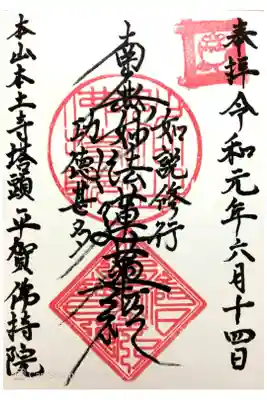 奉拝 令和元年六月十四日
如説修行
南無妙法蓮華経
功徳甚多
本山本土寺塔頭平賀佛持院